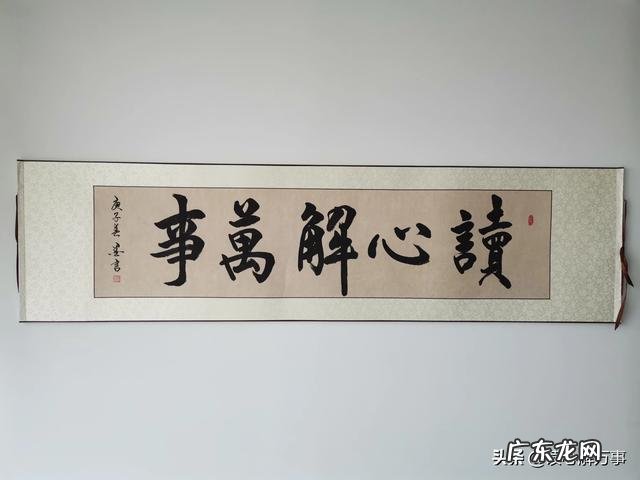 讀心解萬事
庚子冬
書
广东龙网
头条